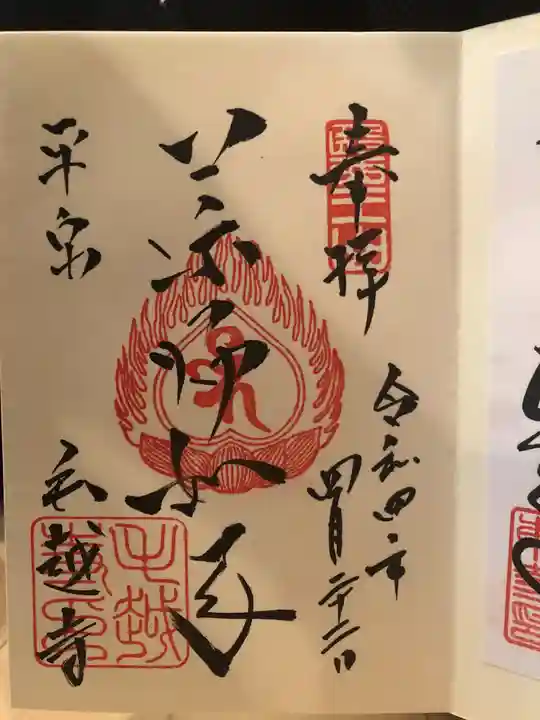 奉拝
令和四年
四月二十二日
薬師如来
平泉
毛越寺